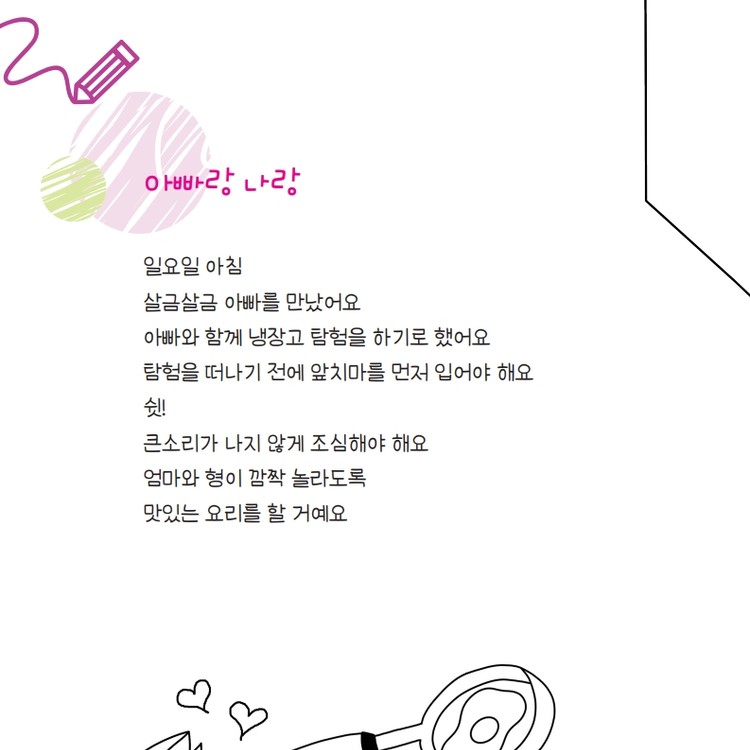 아빠랑 나랑
일요일 아침
살금살금 아빠를 만났어요
아빠와 함께 냉장고 탐험을 하기로 했어요
탐험을 떠나기 전에 앞치마를 먼저 입어야 해요
쉿!
큰소리가 나지 않게 조심해야 해요
엄마와 형이 깜짝 놀라도록
맛있는 요리를 할 거예요